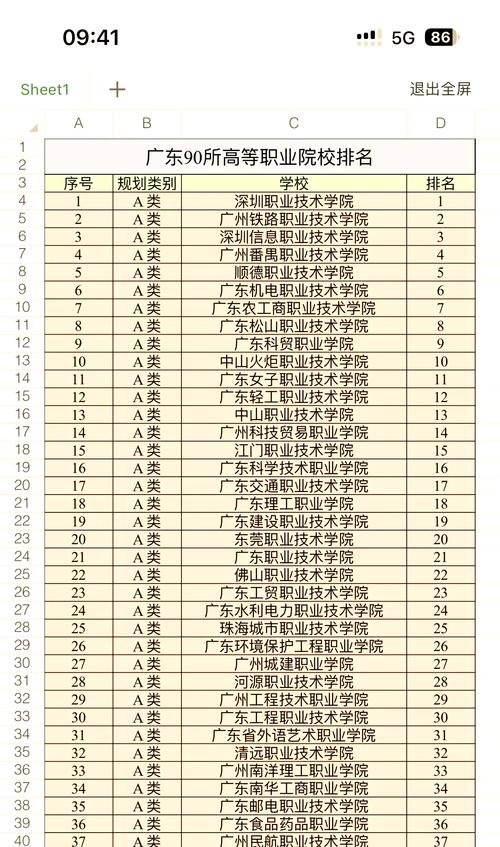 09:41 5G 86
Sheet1 + 退出全屏
A B C D
1
2 广东90所高等职业院校排名
3 序号 规划类别 学校 排名
4 1 A类 深圳职业技术学院 1
5 2 A类 广州铁路职业技术学院 2
6 3 A类 深圳信息职业技术学院 3
7 4 A类 广州番禺职业技术学院 4
8 5 A类 顺德职业技术学院 5
9 6 A类 广东机电职业技术学院 6
10 7 A类 广东农工商职业技术学院 7
11 8 A类 广东松山职业技术学院 8
12 9 A类 广东科贸职业学院 9
13 10 A类 中山火炬职业技术学院 10
14 11 A类 广东女子职业技术学院 11
15 12 A类 广东轻工职业技术学院 12
16 13 A类 中山职业技术学院 13
17 14 A类 广州科技贸易职业学院 14
18 15 A类 江门职业技术学院 15
19 16 A类 广东科学技术职业学院 16
20 17 A类 广东交通职业技术学院 17
21 18 A类 广东理工职业学院 18
22 19 A类 广东建设职业技术学院 19
23 20 A类 东莞职业技术学院 20
24 21 A类 广东职业技术学院 21
25 22 A类 佛山职业技术学院 22
26 23 A类 广东工贸职业技术学院 23
27 24 A类 广东水利电力职业技术学院 24
28 25 A类 珠海城市职业技术学院 25
29 26 A类 广东环境保护工程职业学院 26
30 27 A类 广州城建职业学院 27
31 28 A类 河源职业技术学院 28
32 29 A类 广州工程技术职业学院 29
33 30 A类 广东工程职业技术学院 30
34 31 A类 广东省外语艺术职业学院 31
35 32 A类 清远职业技术学院 32
36 33 A类 广州南洋理工职业学院 33
37 34 A类 广东南华工商职业学院 34
38 35 A类 广东邮电职业技术学院 35
39 36 A类 广东食品药品职业学院 36
40 37 A类 广州民航职业技术学院 37